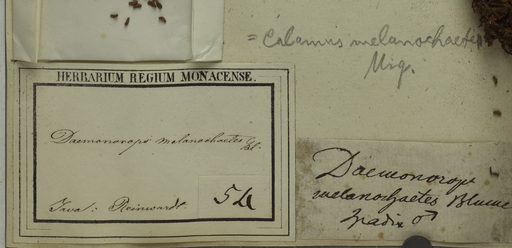 = Calamus melanochaetes
Miq.
HERBARIUM REGIUM MONACENSE.
Daemonorops melanochaetes Bl.
Java: Reinwardt.
54
Daemonorops
melanochaetes Blume
spadix ♂